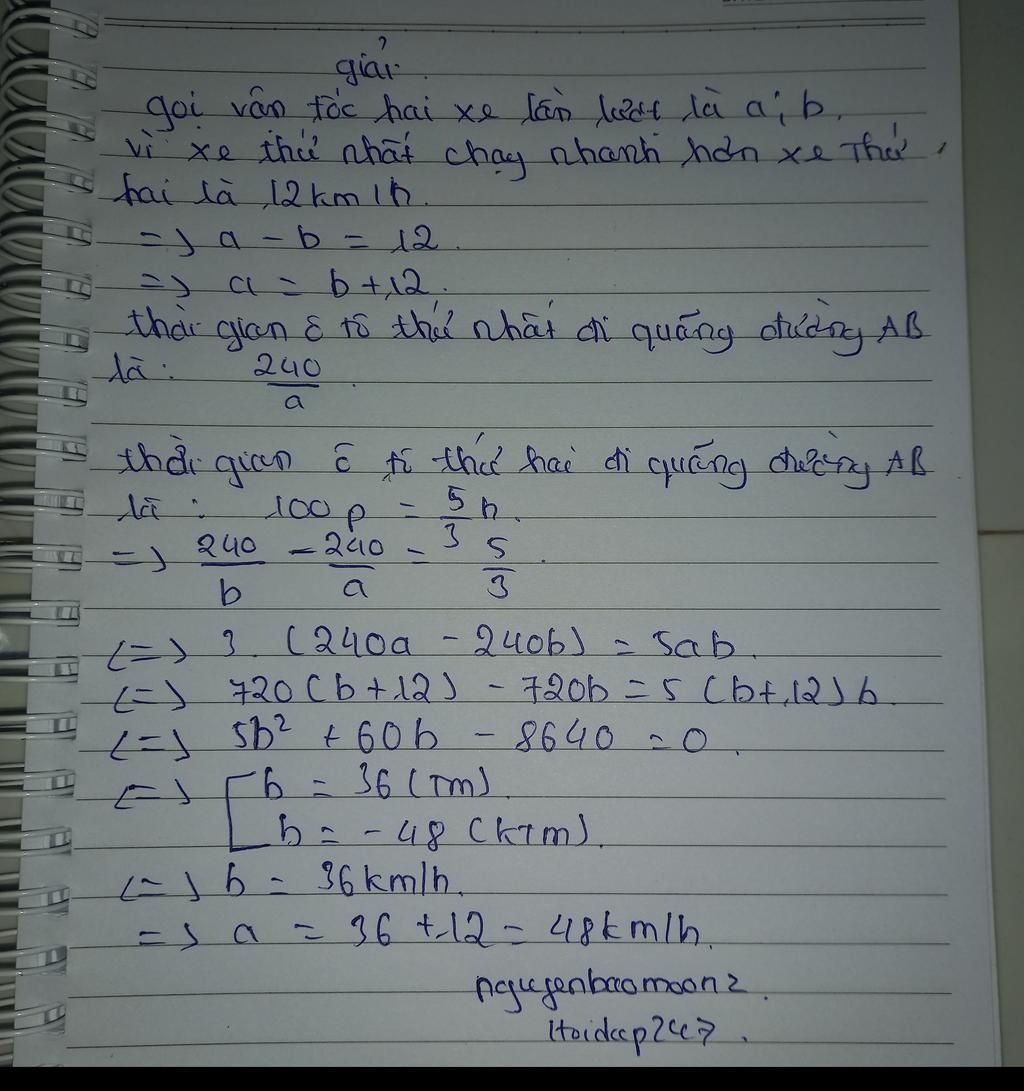 giải.
gọi vân tốc hai xe lần lượt là a; b.
vì xe thứ nhất chạy nhanh hơn xe Thứ
hai là 12km/h.
=> a - b = 12.
=> a = b + 12.
thời gian ô tô thứ nhất đi quãng đường AB
là: 240/a.
thời gian ô tô thứ hai đi quãng đường AB
là: 100p = 5/3 h.
=> 240/b - 240/a = 5/3.
<=> 3. (240a - 240b) = 5ab.
<=> 720(b+12) - 720b = 5(b+12)b.
<=> 5b² + 60b - 8640 = 0.
<=> [ b = 36 (Tm).
b = -48 (kTm).
<=> b = 36km/h.
=> a = 36 + 12 = 48km/h.
nguyenbaomoon2.
Hoidap247.